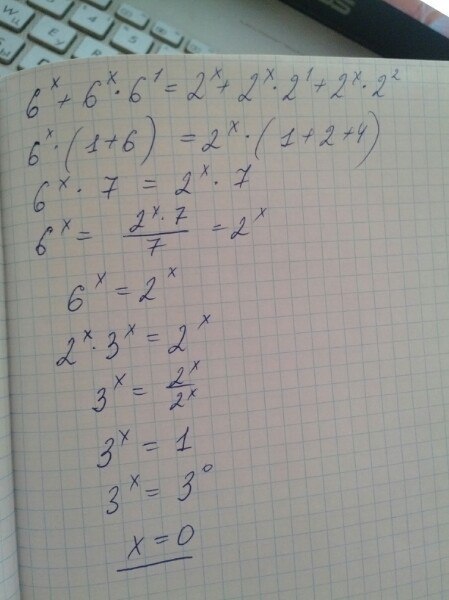 6^x + 6^x · 6^1 = 2^x + 2^x · 2^1 + 2^x · 2^2
6^x · (1+6) = 2^x · (1+2+4)
6^x · 7 = 2^x · 7
6^x = (2^x · 7)/7 = 2^x
6^x = 2^x
2^x · 3^x = 2^x
3^x = 2^x/2^x
3^x = 1
3^x = 3^0
x = 0